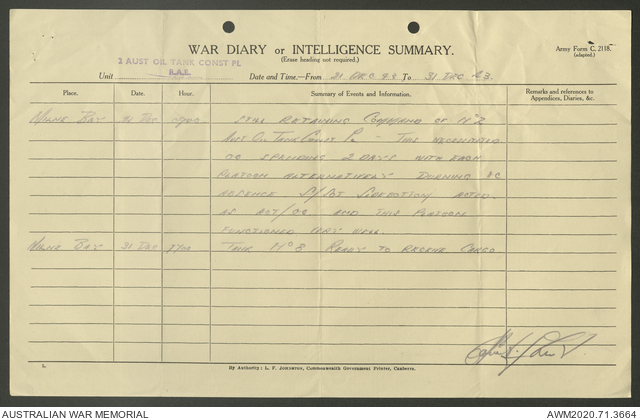 WAR DIARY or INTELLIGENCE SUMMARY.
(Erase heading not required.)
Army Form C. 2118.
(adapted.)
2 AUST OIL TANK CONST PL
R.A.E.
Unit
Date and Time.—From 31 DEC To 31 DEC 43.
Place. Date. Hour. Summary of Events and Information. Remarks and references to Appendices, Diaries, &c.
MILNE BAY 31 DEC STILL RETAINING COMMAND OF Nº2
AUST OIL TANK CONST PL - THIS NECESSITATED
OC SPENDING 2 DAYS WITH EACH
PLATOON ALTERNATIVELY DURING OC
ABSENCE S/SGT ACTED
AS ACT/OC. AND THIS PLATOON
FUNCTIONED VERY WELL.
MILNE BAY 31 DEC 1700 TANK Nº 8 READY TO RECEIVE CARGO.
L.
By Authority: L. F. JOHNSTON, Commonwealth Government Printer, Canberra.
AUSTRALIAN WAR MEMORIAL
AWM2020.71.3664